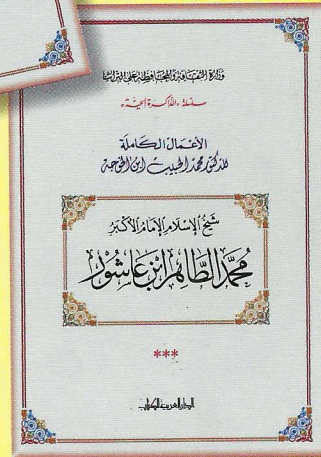 وزارة الثقافة والمحافظة على التراث
سلسلة «الذاكرة الحية»
الأعمال الكاملة
للدكتور محمد الحبيب ابن الخوجة
شيخ الإسلام الإمام الأكبر
محمد الطاهر ابن عاشور
***
الدار العربية للكتاب